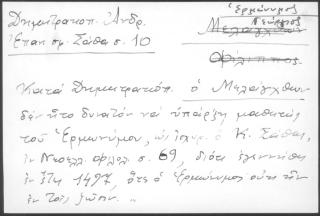 Δημητρακοπ. Ἀνδρ.
Ἐπαν. σφ. Σάθα σ. 10
Ἑρμώνυμος
Γεώργιος
Μελάγχθων
Φίλιππος
Κατὰ Δημητρακόπ. ὁ Μελάγχθων
δὲν ἦτο δυνατὸν νὰ ὑπάρξῃ μαθητὴς
τοῦ Ἑρμωνύμου, ὡς ἰσχυρ. ὁ Κ. Σάθας,
ἐν Νεοελλ. φιλολ. σ. 69, διότι ἐγεννήθη
ἐν ἔτει 1497, ὅτε ὁ Ἑρμώνυμος οὐκ ἦν
ἐν τοῖς ζῶσιν. "